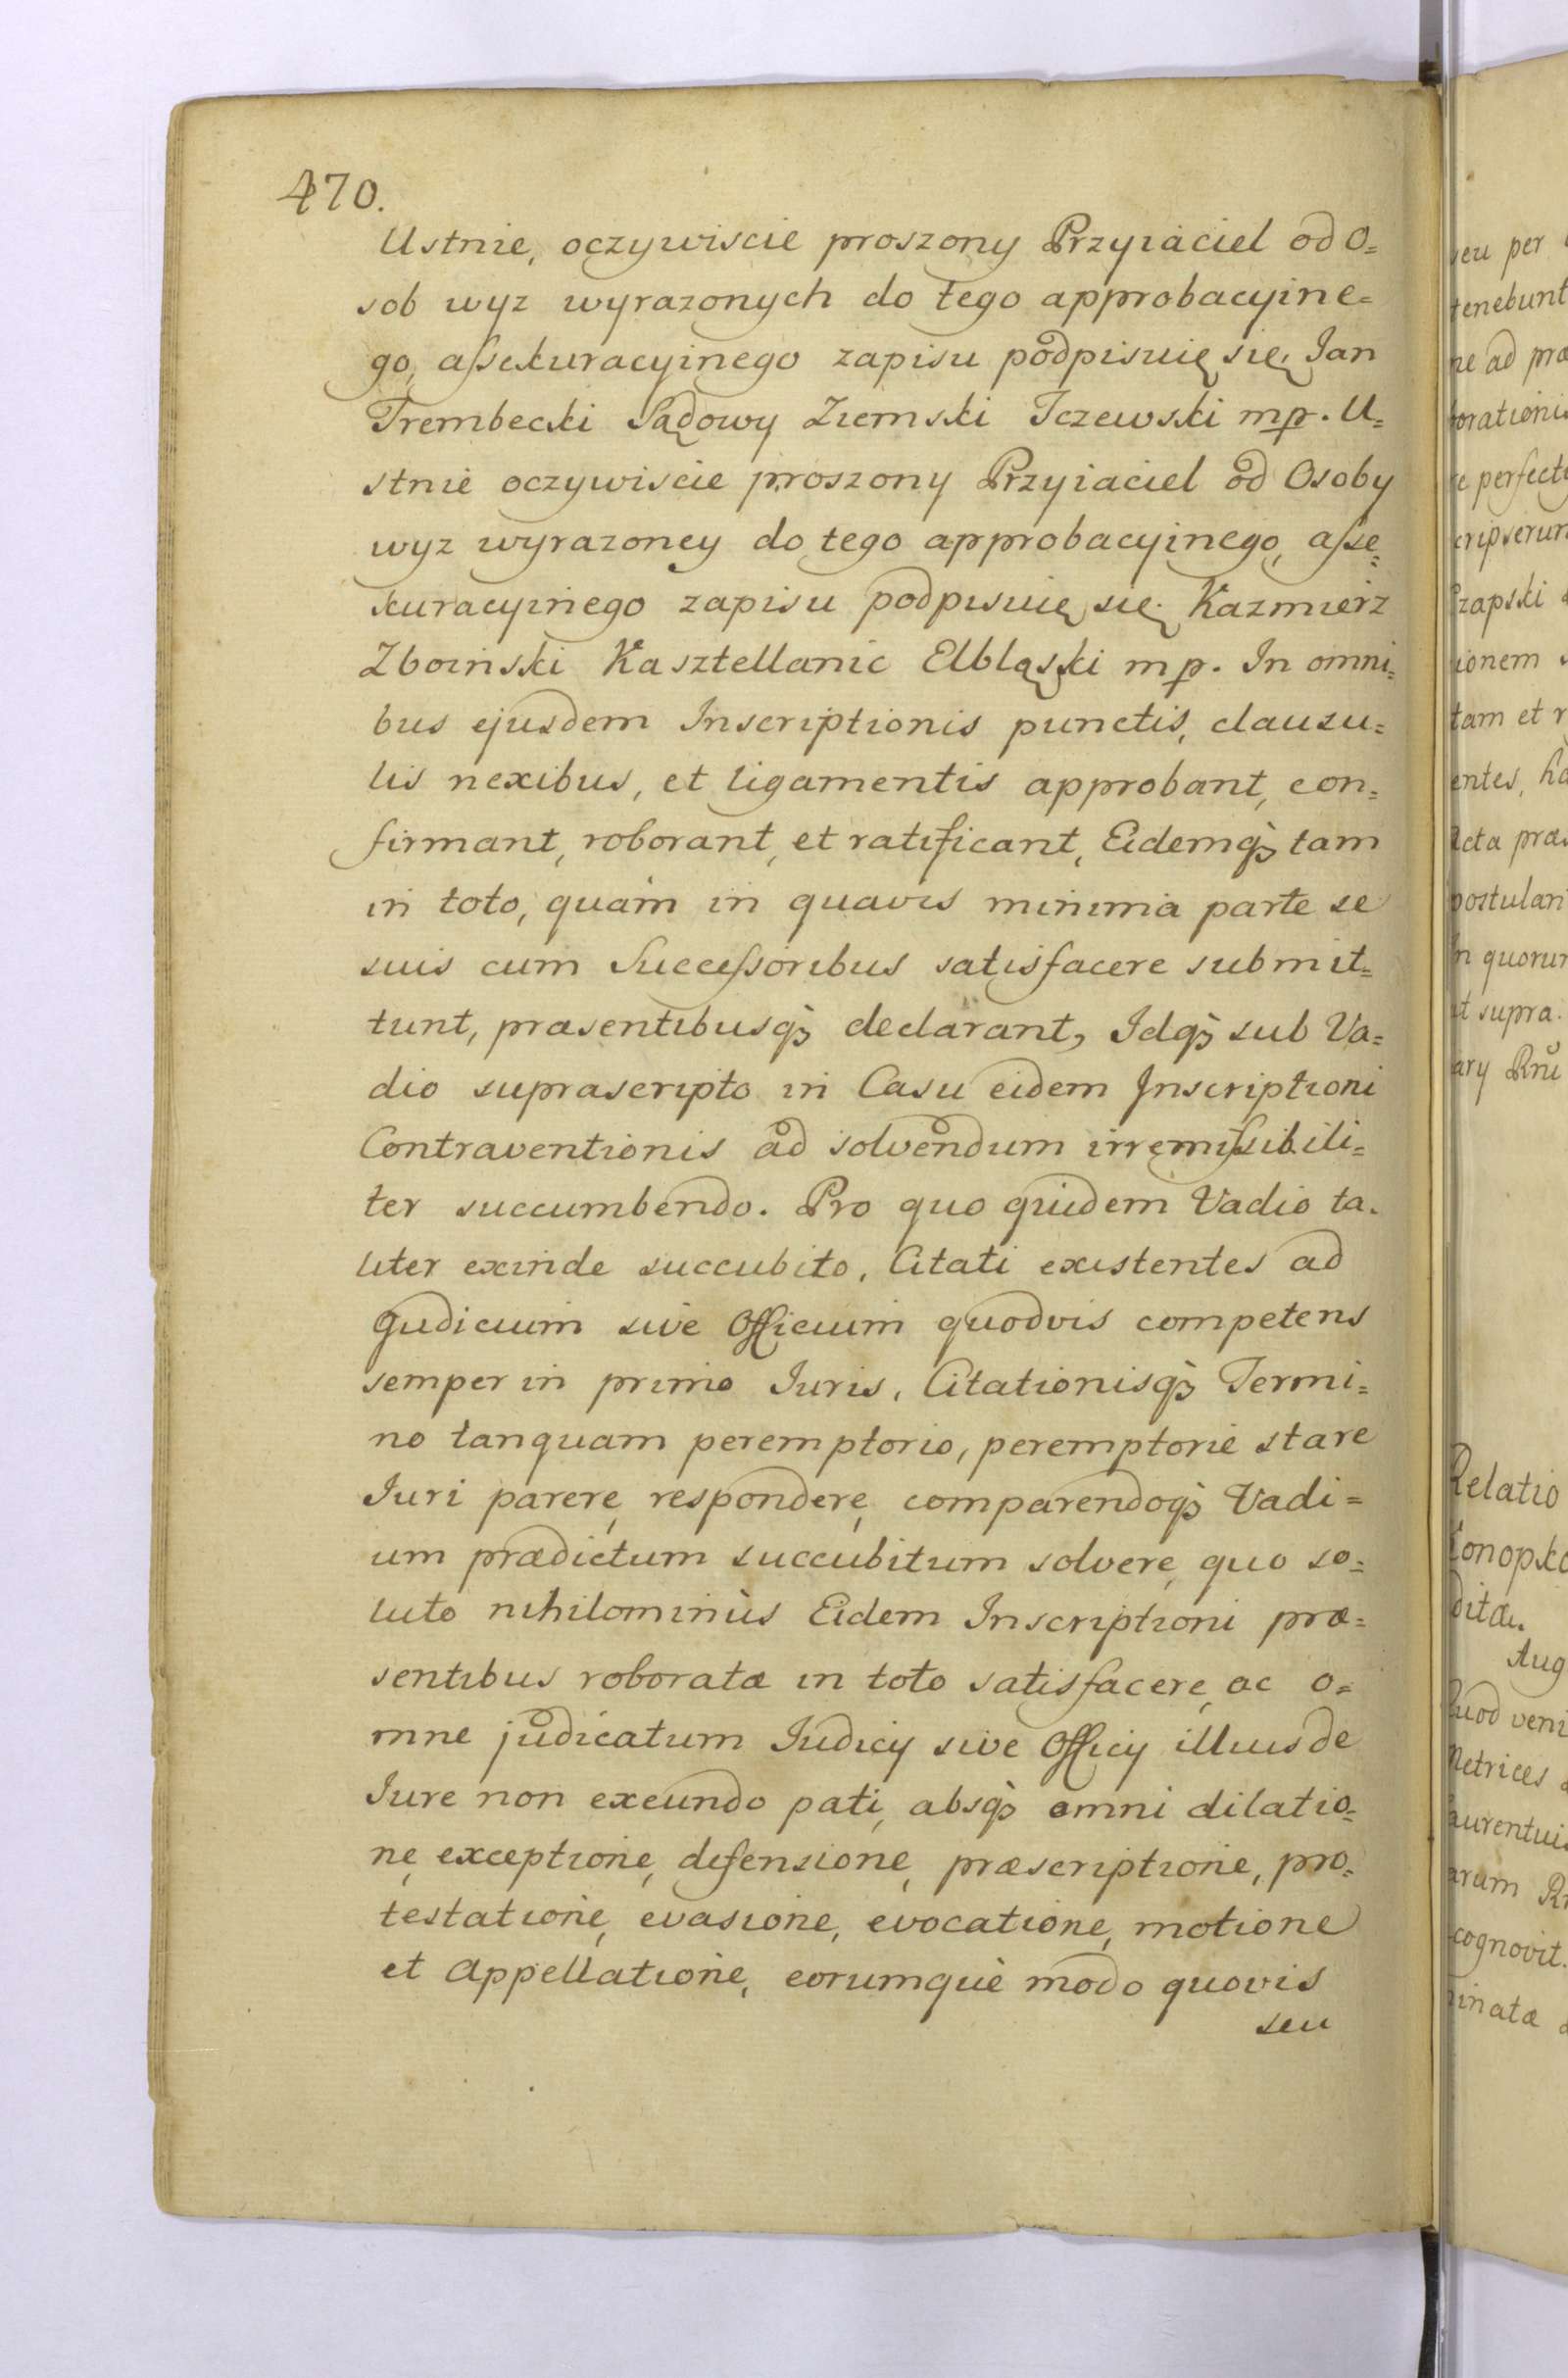 470.
Ustnie, oczywiscie proszony Przyiaciel od O=
sob wyz wyrazonych do tego approbacyine=
go, assekuracyinego zapisu podpisuię się, Jan
Trembecki Sądowy Ziemski Tczewski mp. U=
stnie oczywiscie proszony Przyiaciel od Osoby
wyz wyrazoney do tego approbacyinego, asse=
kuracyinego zapisu podpisuię się. Kazmierz
Zboinski Kasztellanic Elbląski mp. In omni=
bus ejusdem Inscriptionis punctis, clausu=
lis nexibus, et ligamentis approbant, con=
firmant, roborant, et ratificant, Eidemq3 tam
in toto, quàm in quavis minima parte se
suis cum Successoribus satisfacere submit=
tunt, præsentibusq3 declarant, Idq3 sub Va=
dio suprascripto in Casu eidem Inscriptioni
Contraventionis ad solvendum irremissibili=
ter succumbendo. Pro quo quidem Vadio ta=
liter exinde succubito, Citati existentes ad
Judicium sive Officium quodvis competens
semper in primo Juris, Citationisq3 Termi=
no tanquam peremptorio, peremptorie stare
Juri parere, respondere, comparendoq3 Vadi=
um prædictum succubitum solvere, quo so=
luto nihilominùs Eidem Inscriptioni præ=
sentibus roboratæ in toto satisfacere, ac o=
mne judicatum Judicy sive Officy illius de
Jure non exeundo pati, absq3 omni dilatio=
ne, exceptione, defensione, præscriptione, pro=
testatione, evasione, evocatione, motione
et Appellatione, eorumque modo quovis
seu
seu per
tenebunt
ne ad præ
borationis
perfecte
cripserun
Czapski
ionem
tam et r
entes, ha
Acta præs
postulan
In quorum
ut supra.
Relatio
Konopk
ditæ.
Aug
Quod veni
Metrices
aurentuis
arum
cognovit.
inatæ